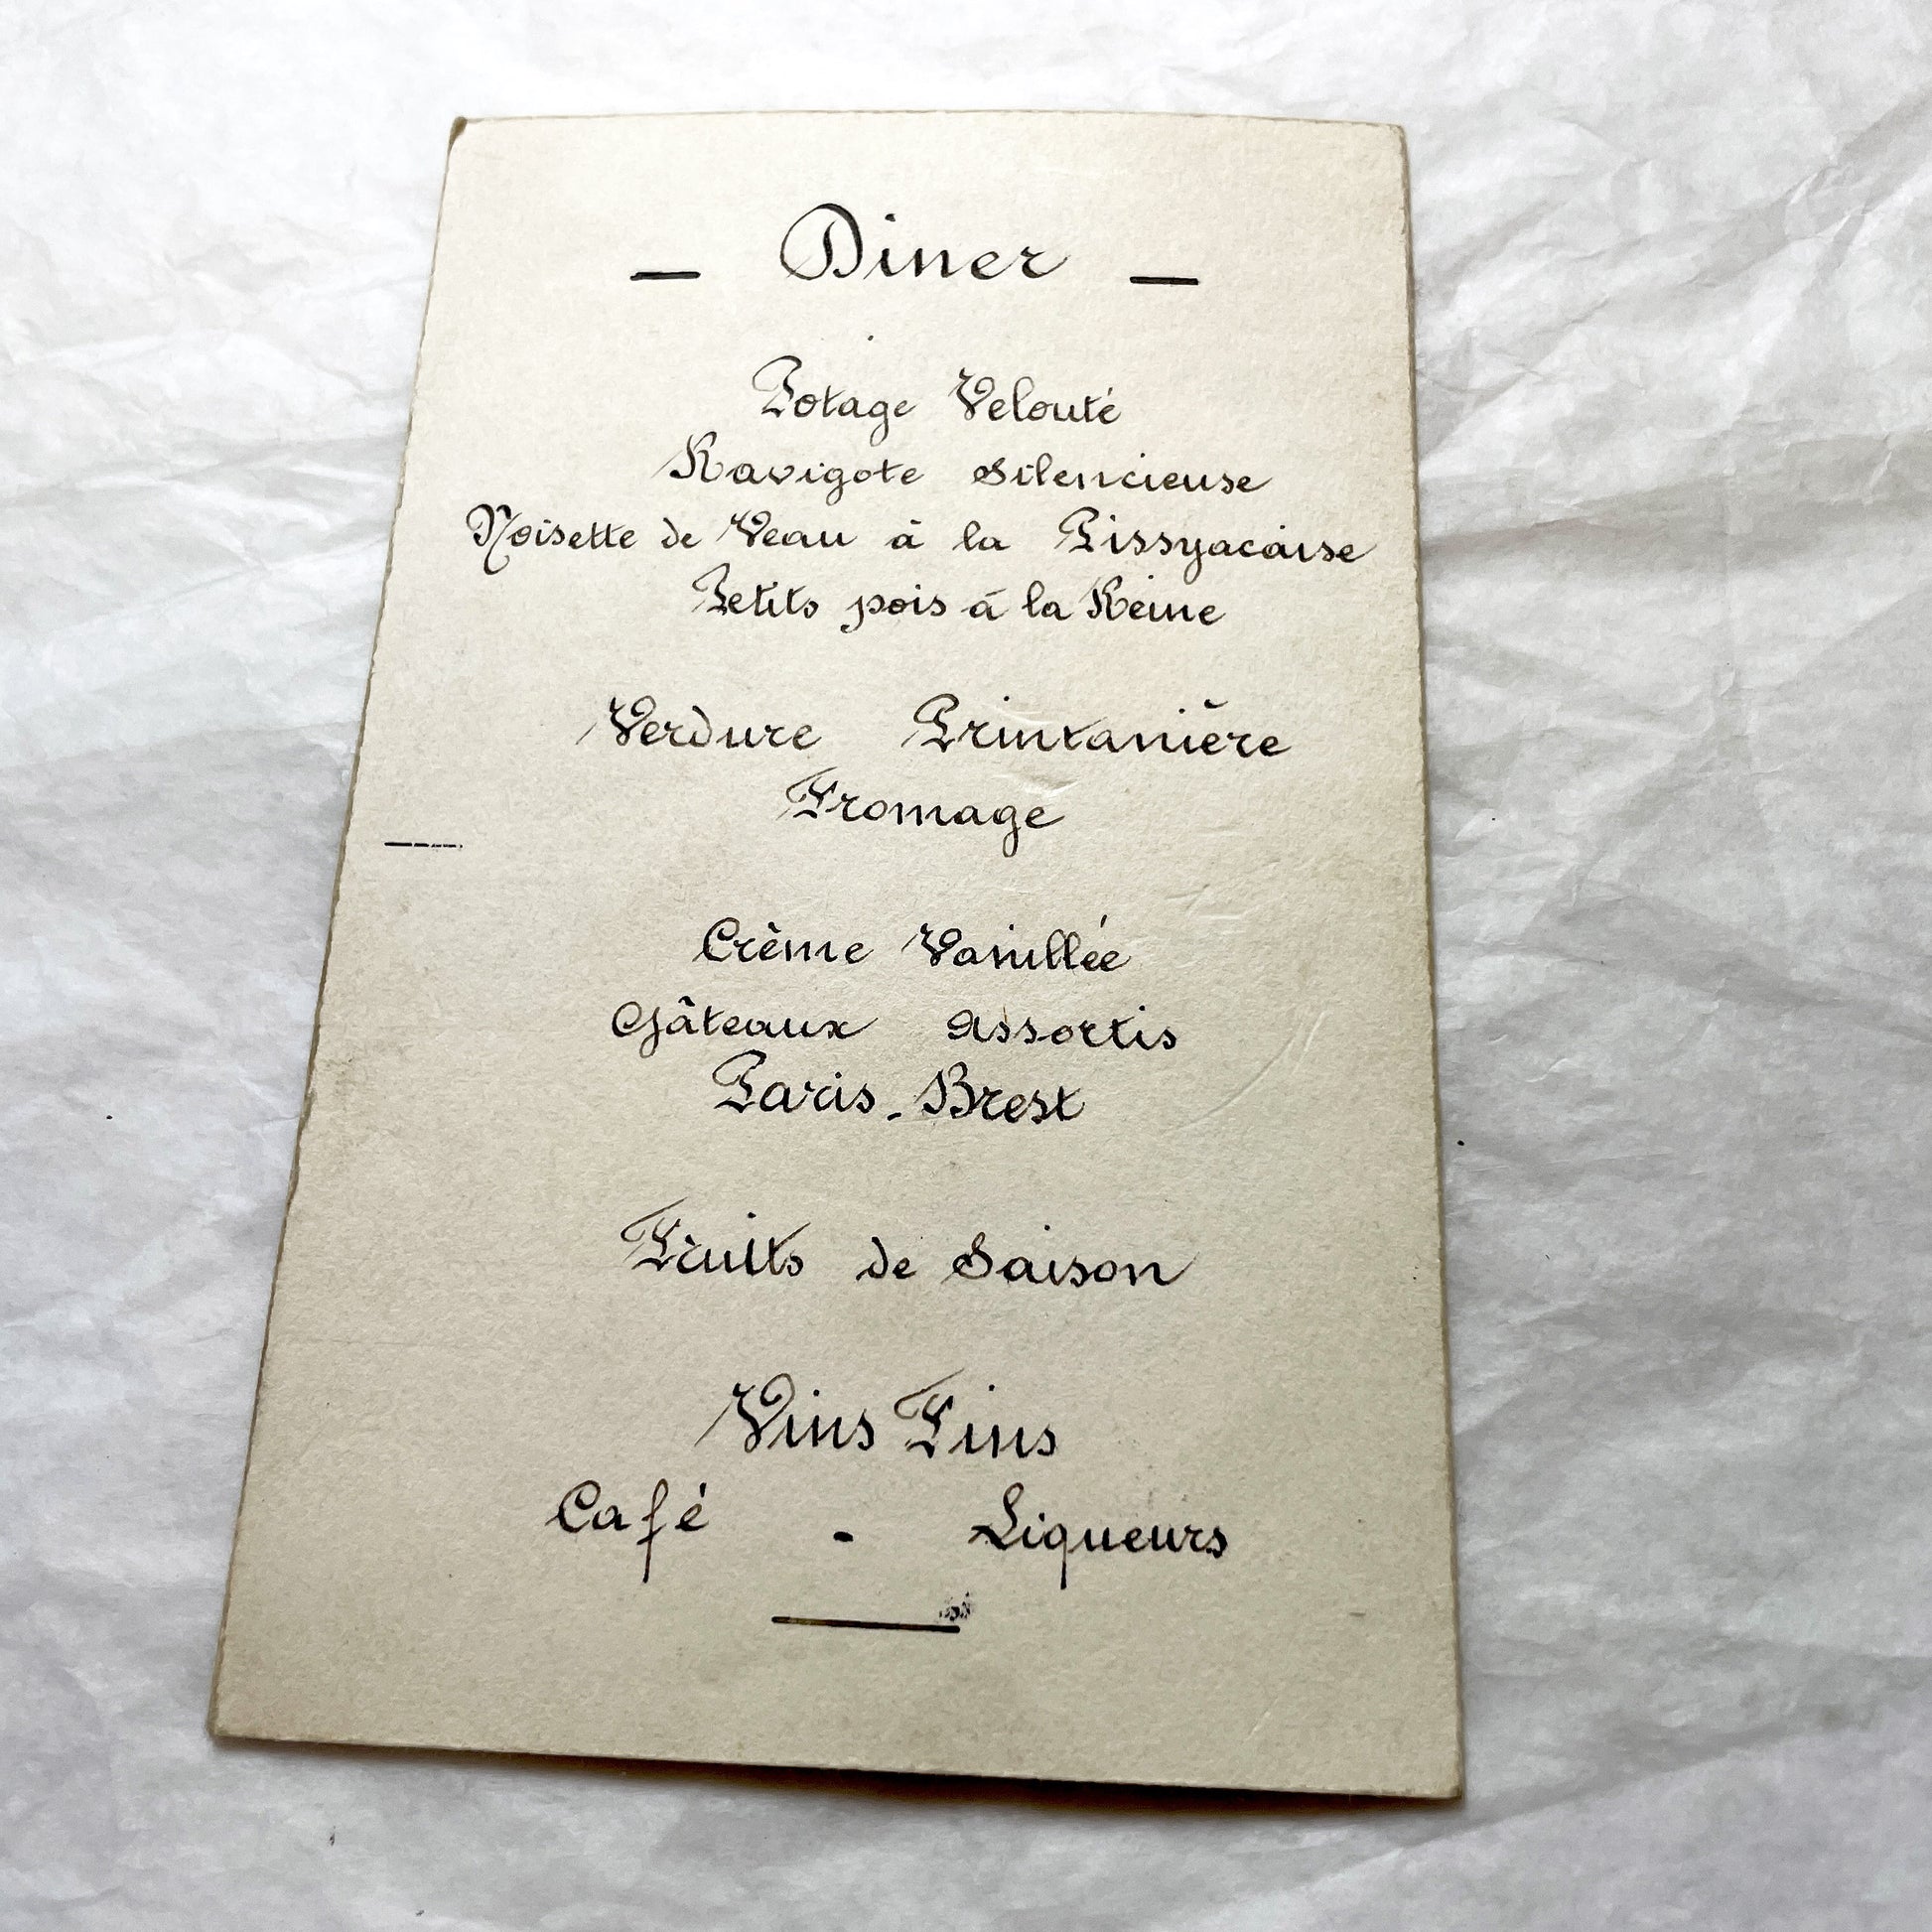 — Diner —
Potage Velouté
Ravigote Silencieuse
Noisette de Veau à la Pissyacaise
Petits pois à la Reine
Verdure Printanière
Fromage
Crème Vanillée
Gâteaux Assortis
Paris-Brest
Fruits de Saison
Vins Fins
Café - Liqueurs